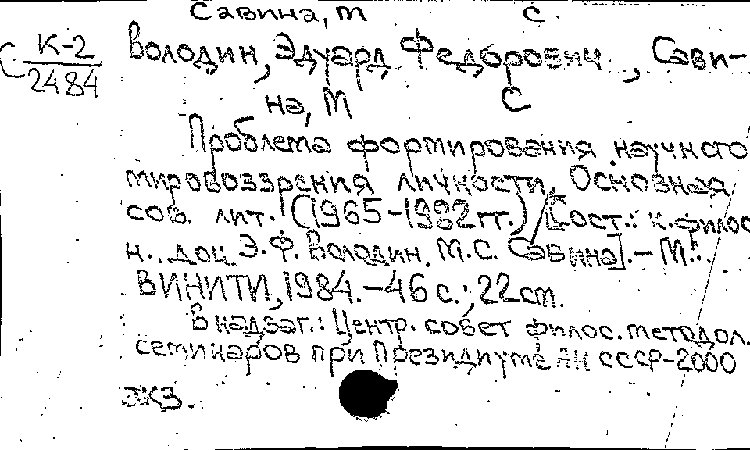 Савина, М С.
С К-2
2484
Володин, Эдуард Федорович, Сави-
на, М С
Проблема формирования научного
мировоззрения личности. Основная
сов. лит. (1965-1982гг.) / [Сост.: к.филос.
н., доц. Э.Ф. Володин, М.С. Савина]. - М.:
ВИНИТИ, 1984. - 46 с.; 22 см.
В надзаг.: Центр. совет филос. методол.
семинаров при Президиуме АН СССР - 2000
экз.